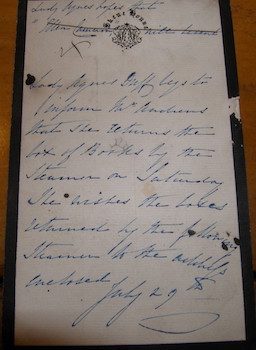 Lady Agnes hopes that
Lady Agnes Duff begs to
inform Mr Andrews
that She returns the
box of Books by the
Steamer on Saturday
She wishes the boxes
returned by the following
Steamer to the
enclosed
July 29th